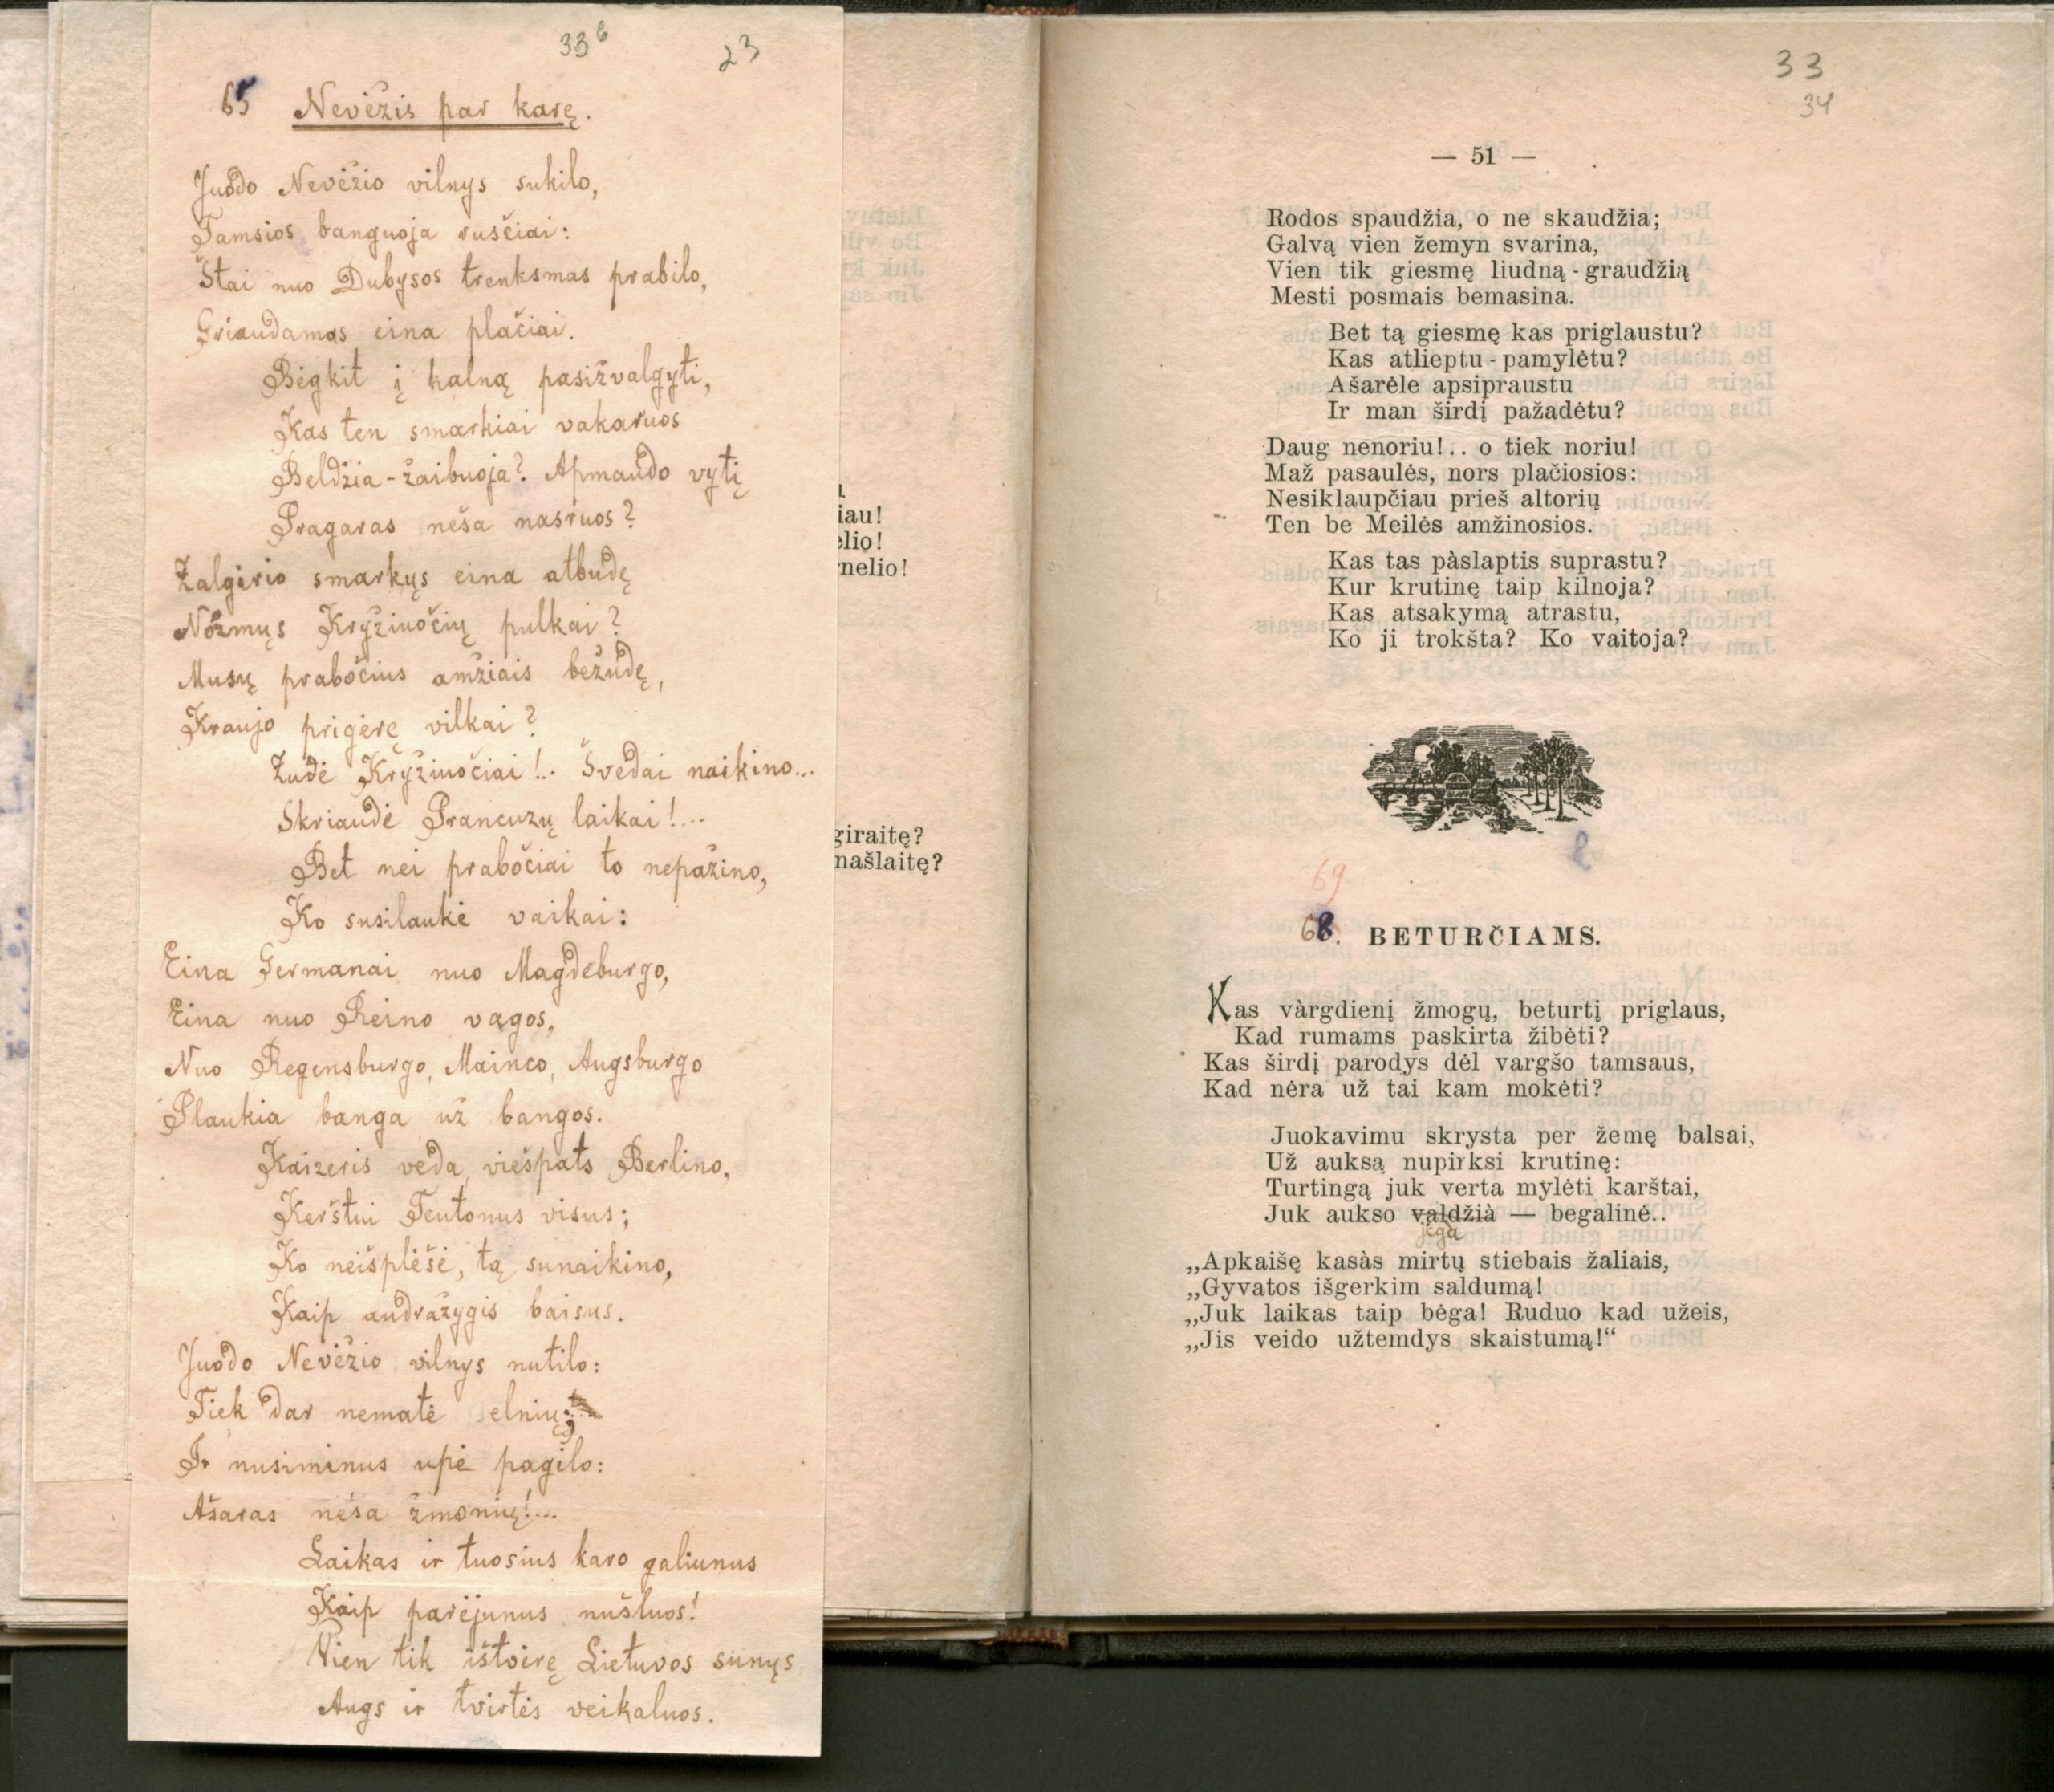 33b 23
65 Nevėžis par karę.
Juodo Nevėžio vilnys sukilo,
Tamsios banguoja rusčiai:
Štai nuo Dubysos trenksmas prabilo,
Griaudamas eina plačiai.
Bėgkit į kalną pasižvalgyti,
Kas ten smarkiai vakaruos
Beldžia-žaibuoja? Apmaudo vytį
Pragaras neša nasruos?
Žalgirio smarkųs eina atbudę
Nožmųs Kryžiuočių pulkai?
Musų prabočius amžiais bežudę,
Kraujo prigėrę vilkai?
Žudė Kryžiuočiai!.. Švedai naikino...
Skriaudė Prancuzų laikai!...
Bet nei prabočiai to nepažino,
Ko susilaukė vaikai:
Eina Germanai nuo Magdeburgo,
Eina nuo Reino vagos,
Nuo Regensburgo, Mainco, Augsburgo
Plaukia banga už bangos.
Kaizeris veda, viešpats Berlino,
Kerštui Teutonus visus;
Ko neišplėšė, tą sunaikino,
Kaip audražygis baisus.
Juodo Nevėžio vilnys nutilo:
Tiek dar nematė elnių;
Ir nusiminus upė pagilo:
Ašaras neša žmonių!...
Laikas ir tuosius karo galiunus
Kaip parėjunus nušluos!
Vien tik ištvėrę Lietuvos sunųs
Augs ir tvirtės veikaluos.
iau!
elio!
rnelio!
giraitę?
našlaitę?
33
34
— 51 —
Rodos spaudžia, o ne skaudžia;
Galvą vien žemyn svarina,
Vien tik giesmę liudną-graudžią
Mesti posmais bemasina.
Bet tą giesmę kas priglaustu?
Kas atlieptu-pamylėtu?
Ašarėle apsipraustu
Ir man širdį pažadėtu?
Daug nenoriu!.. o tiek noriu!
Maž pasaulės, nors plačiosios:
Nesiklaupčiau prieš altorių
Ten be Meilės amžinosios.
Kas tas pàslaptis suprastu?
Kur krutinę taip kilnoja?
Kas atsakymą atrastu,
Ko ji trokšta? Ko vaitoja?
69
68. BETURČIAMS.
Kas vàrgdienį žmogų, beturtį priglaus,
Kad rumams paskirta žibėti?
Kas širdį parodys dėl vargšo tamsaus,
Kad nėra už tai kam mokėti?
Juokavimu skrysta per žemę balsai,
Už auksą nupirksi krutinę:
Turtingą juk verta mylėti karštai,
Juk aukso valdžià — begalinė..
jėga
„Apkaišę kasàs mirtų stiebais žaliais,
„Gyvatos išgerkim saldumą!
„Juk laikas taip bėga! Ruduo kad užeis,
„Jis veido užtemdys skaistumą!“